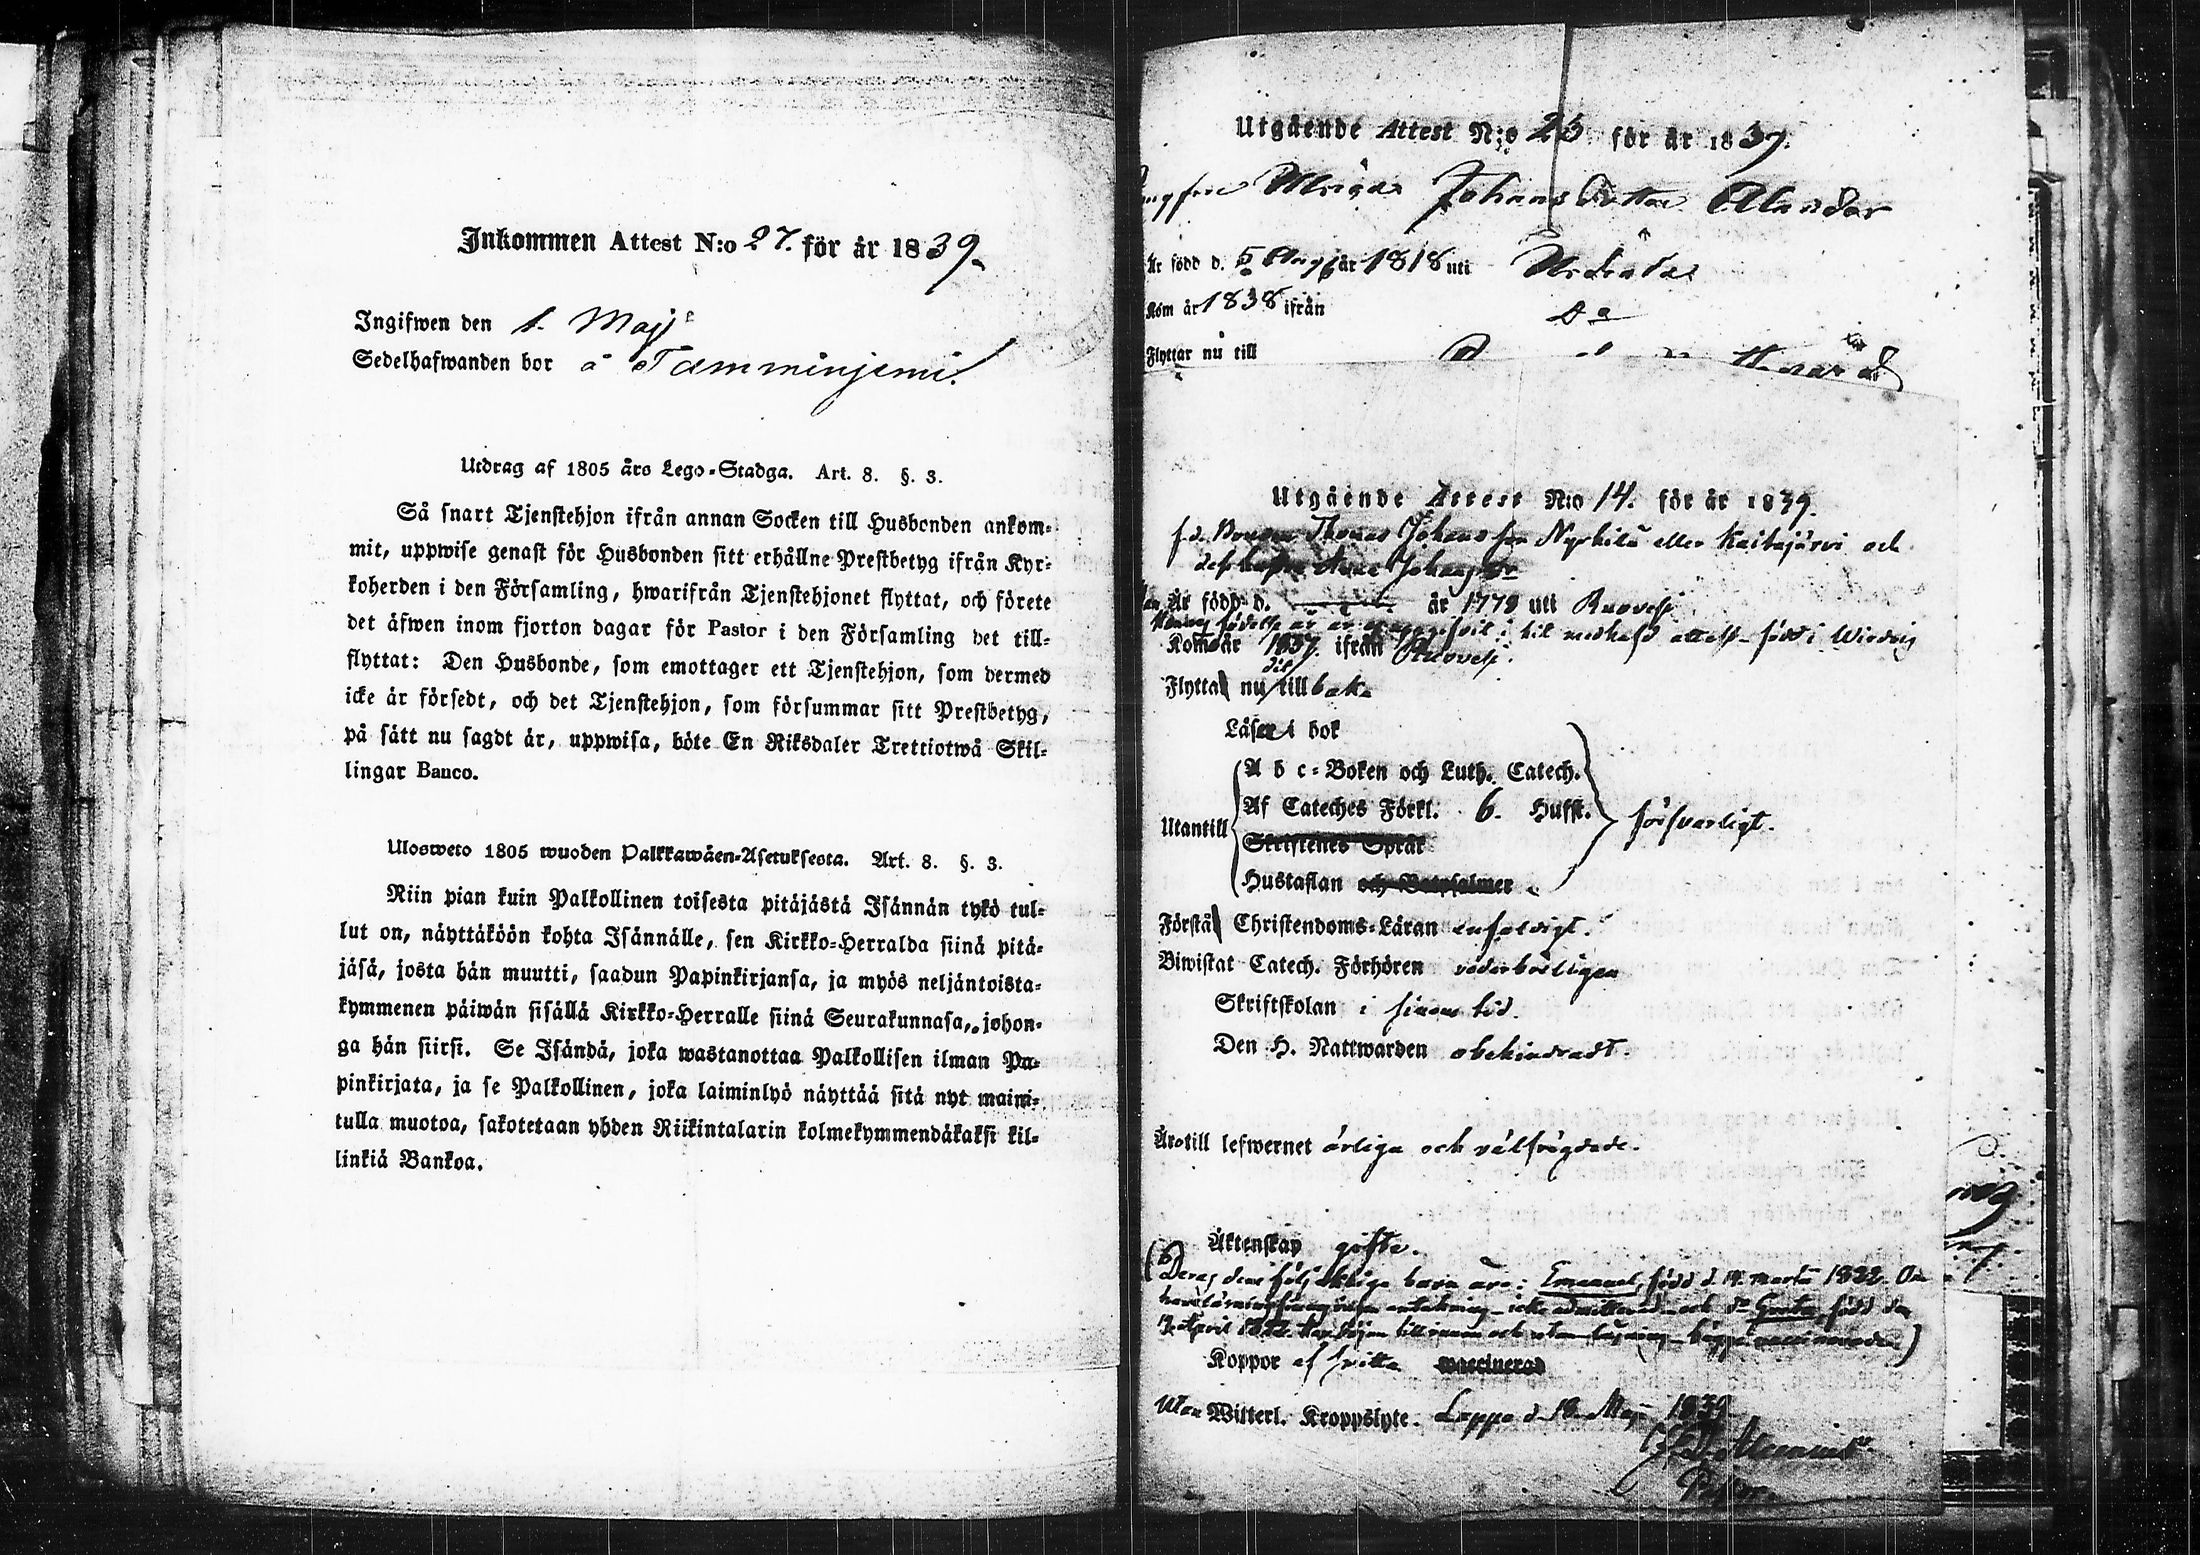 Inkommen Attest N:o 27. för år 1839.
Ingifwen den 1. Maji
Sedelhafwanden bor å Tamminjemi.
Utdrag af 1805 års Lego-Stadga. Art. 8. §. 3.
Så snart Tjenstehjon ifrån annan Socken till Husbonden ankom-
mit, uppwise genast för Husbonden sitt erhållne Prestbetyg ifrån Kyr-
koherden i den Församling, hwarifrån Tjenstehjonet flyttat, och förete
det äfwen inom fjorton dagar för Pastor i den Församling det till-
flyttat: Den Husbonde, som emottager ett Tjenstehjon, som dermed
icke är försedt, och det Tjenstehjon, som försummar sitt Prestbetyg,
på sätt nu sagdt är, uppwisa, böte En Riksdaler Trettiotwå Skil-
lingar Banco.
Ulosweto 1805 wuoden Palkkawäen-Asetuksesta. Art. 8. §. 3.
Niin pian kuin Palkollinen toisesta pitäjästä Isännän tykö tul-
lut on, näyttäköön kohta Isännälle, sen Kirkko-Herralda siinä pitä-
jäsä, josta hän muutti, saadun Papinkirjansa, ja myös neljäntoista-
kymmenen päiwän sisällä Kirkko-Herralle siinä Seurakunnasa, johon-
ga hän siirsi. Se Isändä, joka wastanottaa Palkollisen ilman Pa-
pinkirjata, ja se Palkollinen, joka laiminlyö näyttää sitä nyt maini-
tulla muotoa, sakotetaan yhden Riikintalarin kolmekymmendäkaksi kil-
linkiä Bankoa.
Utgående Attest N:o 23 för år 1839.
Ulrica Johansdotter Alandar
Är född d. 5 Aug. år 1818 uti
Kom år 1838 ifrån Do
Flyttar nu till
Utgående Attest N:o 14. för år 1839.
f.d. Bonden Thomas Johansson Nyrhilä eller Kaitajärvi och
dess hustru Anna Johansdr
Är född d. år 1779 uti Ruovesi
födelse år är i hit medhafd attest född i Wirdois
Kom år 1837. ifrån Ruovesi.
Flytta nu dit tillbaka
Läser i bok
A b c-Boken och Luth. Catech.
Af Cateches Förkl. 6. Hufst. försvarligt.
Utantill
Skriftenes Språk
Hustaflan och Botpsalmer
Förstå Christendoms-Läran enfaldigt.
Biwistat Catech. Förhören vederbörligen
Skriftskolan i sinom tid.
Den H. Nattwarden obehindradt.
Äro till lefwernet ärliga och välfrägdade.
Äktenskap gifte.
Deras följaktige barn äro: Emanuel, född d. 14 Martii 1822.
född den
7 April
Koppor af vaccinerad
Utan Witterl. Kroppslyte. Lappo d. 18 Maji 1839